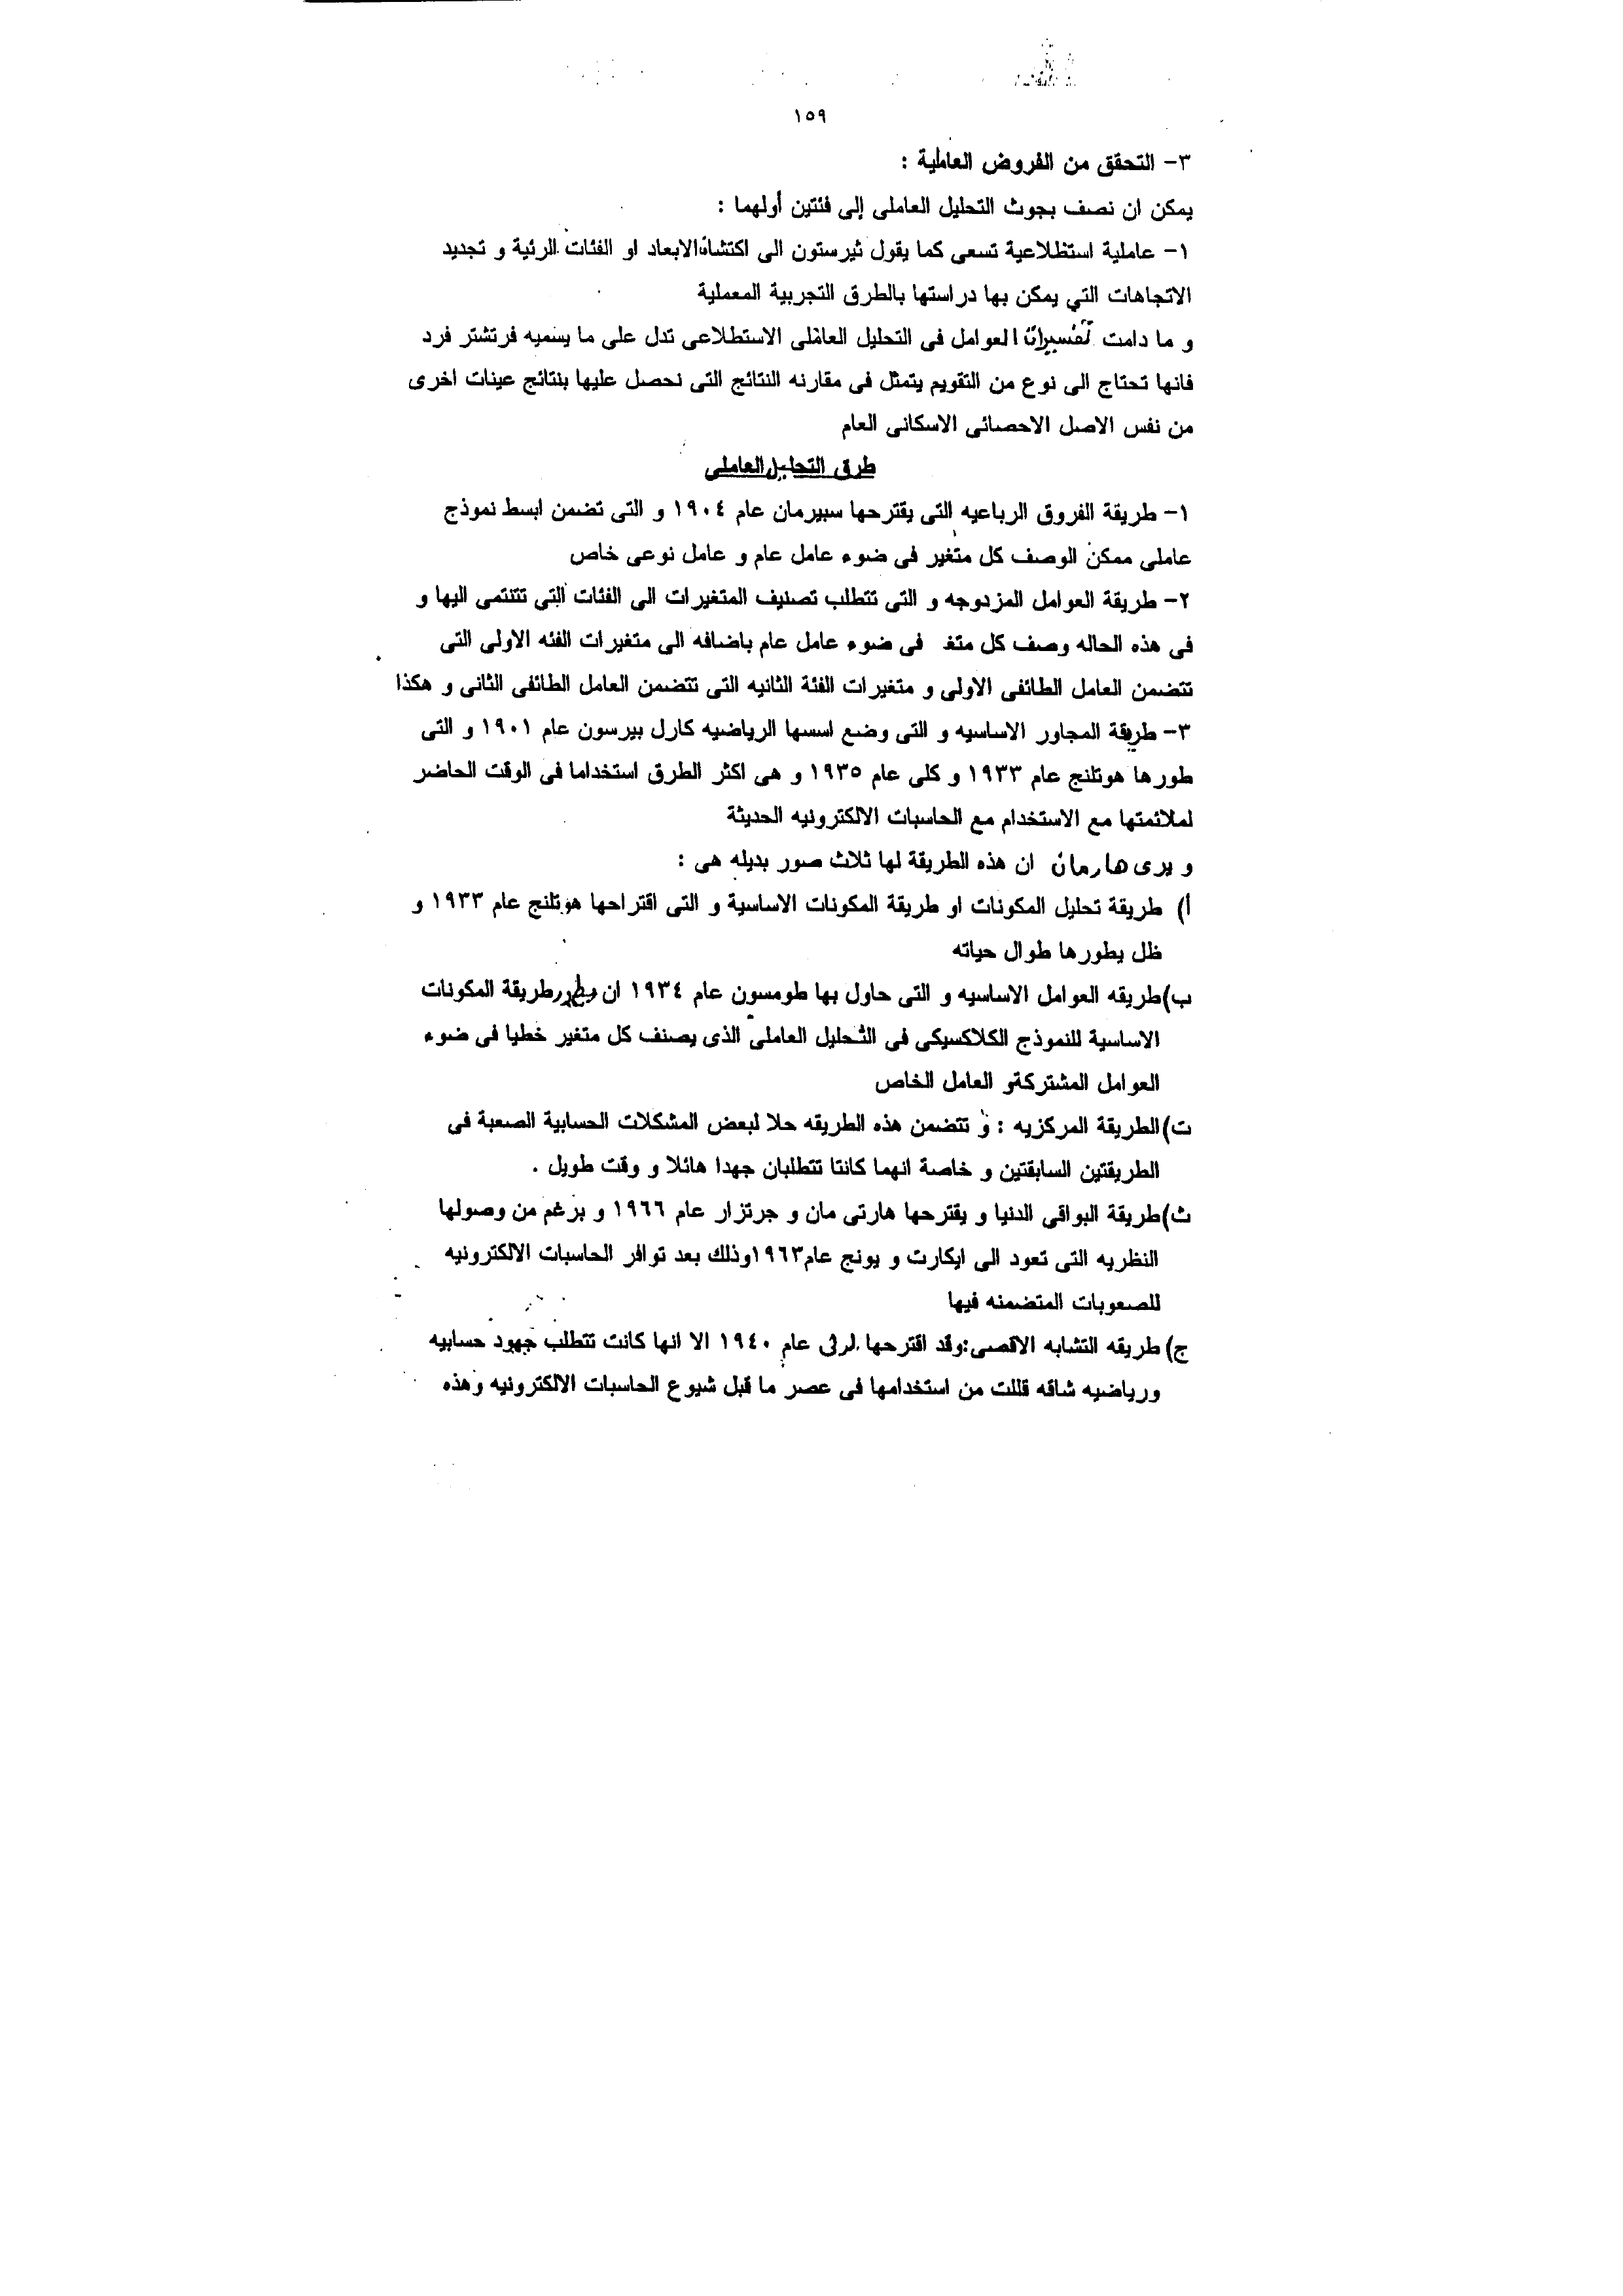 ١٥٩
٣- التحقق من الفروض العاملية :
يمكن ان نصف بجوث التحليل العاملى إلى فئتين أولهما :
١- عاملية استظلاعية تسعى كما يقول ثيرستون الى اكتشاف الابعاد او الفئات الرئية و تجديد
الاتجاهات التي يمكن بها دراستها بالطرق التجربية المعملية
و ما دامت تفسيرات العوامل فى التحليل العاملى الاستطلاعى تدل على ما يسميه فرتشتر فرد
فانها تحتاج الى نوع من التقويم يتمثل فى مقارنه النتائج التى نحصل عليها بنتائج عينات اخرى
من نفس الاصل الاحصائى الاسكانى العام
طرق التحليل العاملى
١- طريقة الفروق الرباعيه التى يقترحها سبيرمان عام ١٩٠٤ و التى تضمن ابسط نموذج
عاملى ممكن الوصف كل متغير فى ضوء عامل عام و عامل نوعى خاص
٢- طريقة العوامل المزدوجه و التى تتطلب تصنيف المتغيرات الى الفئات التى تتتمى اليها و
فى هذه الحاله وصف كل متغ فى ضوء عامل عام باضافه الى متغيرات الفئه الاولى التى
تتضمن العامل الطائفى الاولى و متغيرات الفئة الثانيه التى تتضمن العامل الطائفى الثانى و هكذا
٣- طريقة المجاور الاساسيه و التى وضع اسسها الرياضيه كارل بيرسون عام ١٩٠١ و التى
طورها هوتلنج عام ١٩٣٣ و كلى عام ١٩٣٥ و هى اكثر الطرق استخداما فى الوقت الحاضر
لملائمتها مع الاستخدام مع الحاسبات الالكترونيه الحديثة
و يرى هارمان ان هذه الطريقة لها ثلاث صور بديله هى :
أ) طريقة تحليل المكونات او طريقة المكونات الاساسية و التى اقتراحها هوتلنج عام ١٩٣٣ و
ظل يطورها طوال حياته
ب) طريقه العوامل الاساسيه و التى حاول بها طومسون عام ١٩٣٤ ان يطور طريقة المكونات
الاساسية للنموذج الكلاكسيكى فى التحليل العاملى الذى يصنف كل متغير خطيا فى ضوء
العوامل المشتركة و العامل الخاص
ت) الطريقة المركزيه : و تتضمن هذه الطريقه حلا لبعض المشكلات الحسابية الصعبة فى
الطريقتين السابقتين و خاصة انهما كانتا تتطلبان جهدا هائلا و وقت طويل .
ث) طريقة البواقى الدنيا و يقترحها هارتى مان و جرتزار عام ١٩٦٦ و برغم من وصولها
النظريه التى تعود الى ايكارت و يونج عام ١٩٦٣ وذلك بعد توافر الحاسبات الالكترونيه
للصعوبات المتضمنه فيها
ج) طريقه التشابه الاقصى: وقد اقترحها عام ١٩٤٠ الا انها كانت تتطلب جهود حسابيه
ورياضيه شاقه قللت من استخدامها فى عصر ما قبل شيوع الحاسبات الالكترونيه وهذه